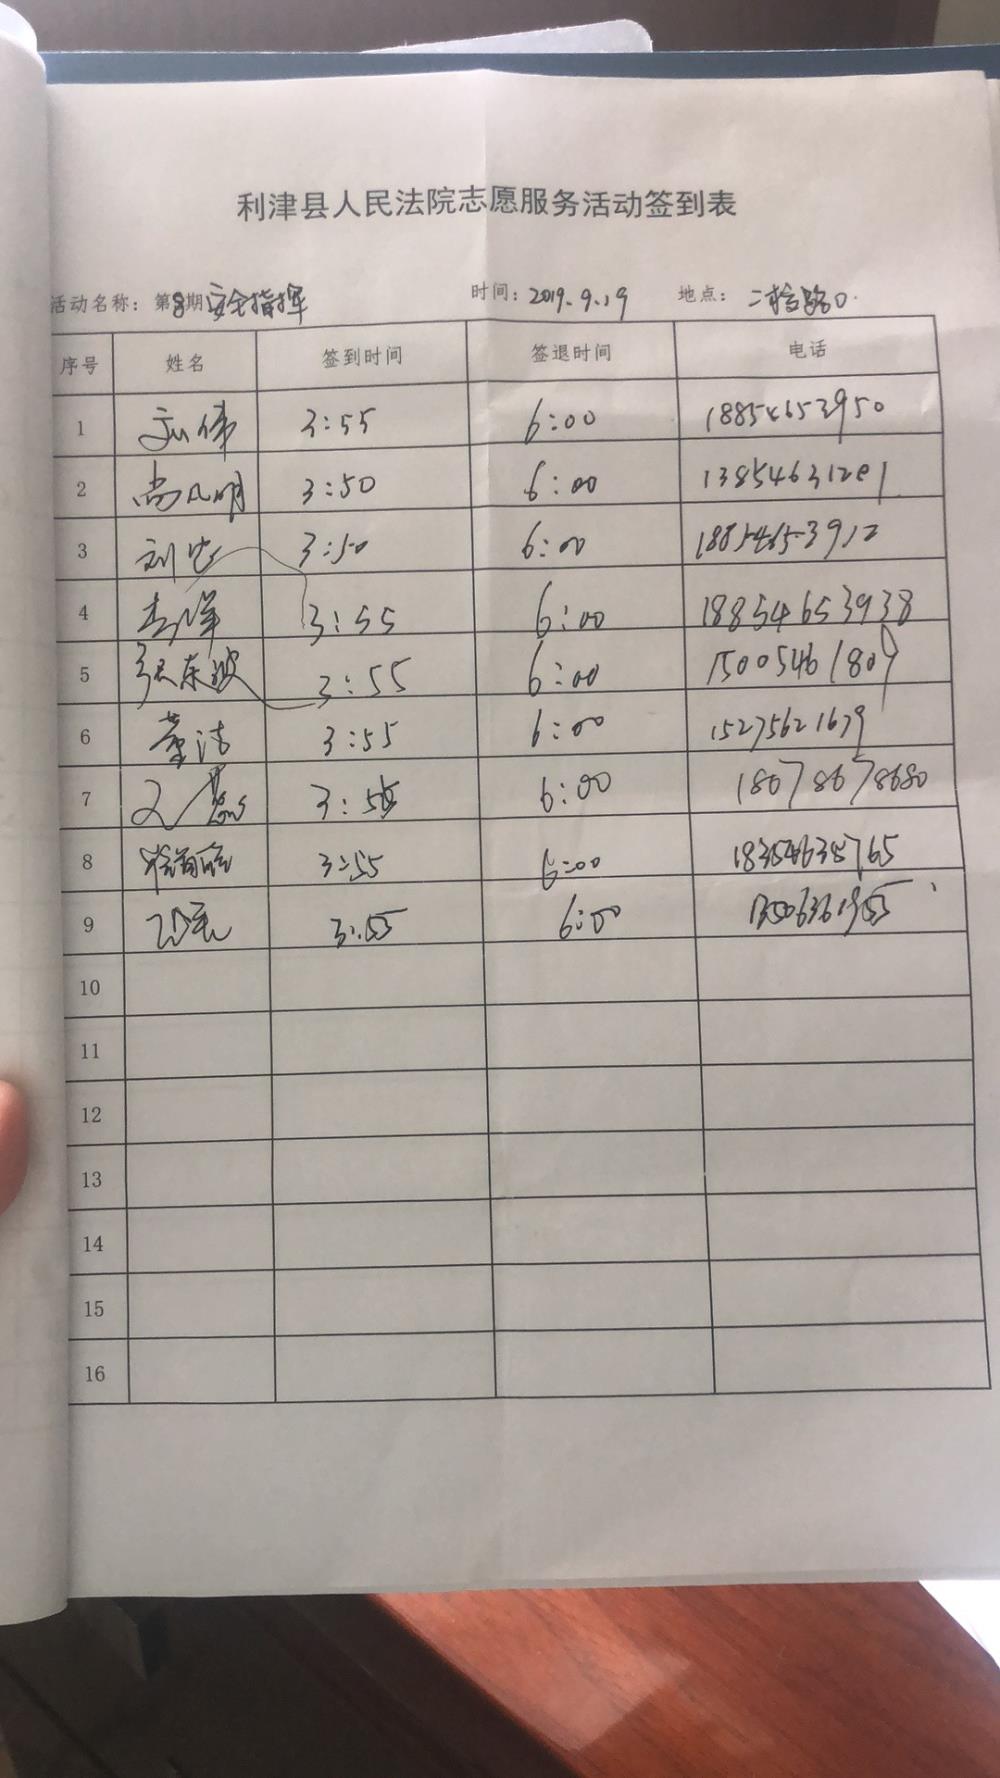 利津县人民法院志愿服务活动签到表
活动名称：第8期安全指挥 时间：2019.9.19 地点：二检路口
序号 姓名 签到时间 签退时间 电话
1 3:55 6:00 18854653950
2 尚凡明 3:50 6:00 13854631201
3 刘忠 3:50 6:00 18854653912
4 李洋 3:55 6:00 18854653938
5 张东波 3:55 6:00 15005461809
6 董洁 3:55 6:00 15275621679
7 3:55 6:00 18678678680
8 3:55 6:00
9 3:55 6:00
10
11
12
13
14
15
16